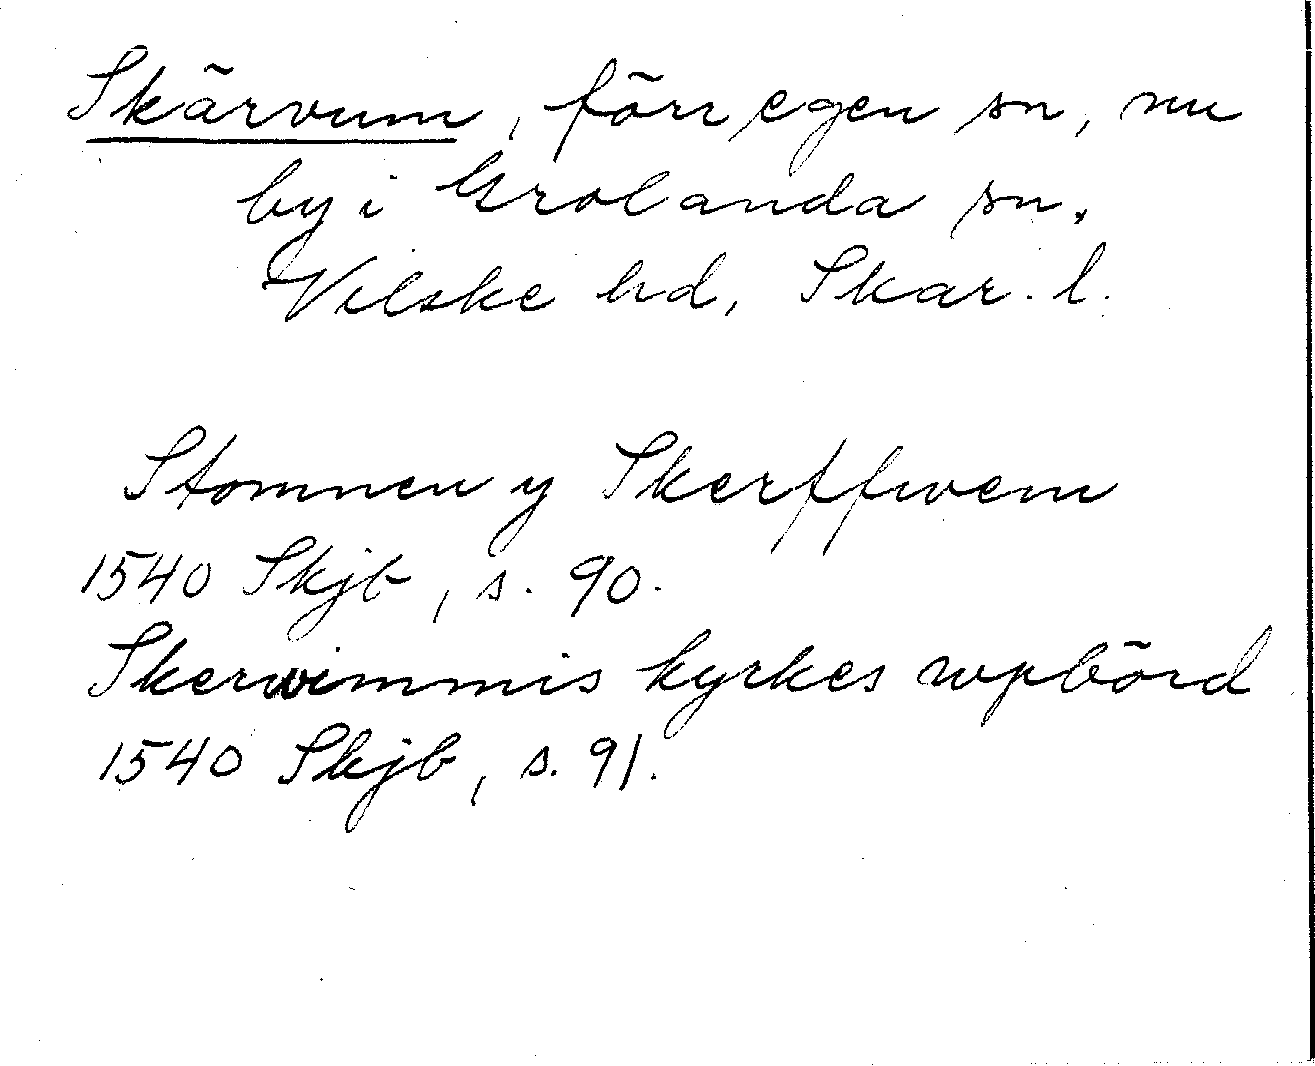 Skärvum, förr egen sn, nu
by i Grolanda sn.
Vilske hd, Skar. l.
Stomnen y Skerffwem
1540 Skjb, s. 90.
Skerwimmis kyrkes wpbörd
1540 Skjb, s. 91.